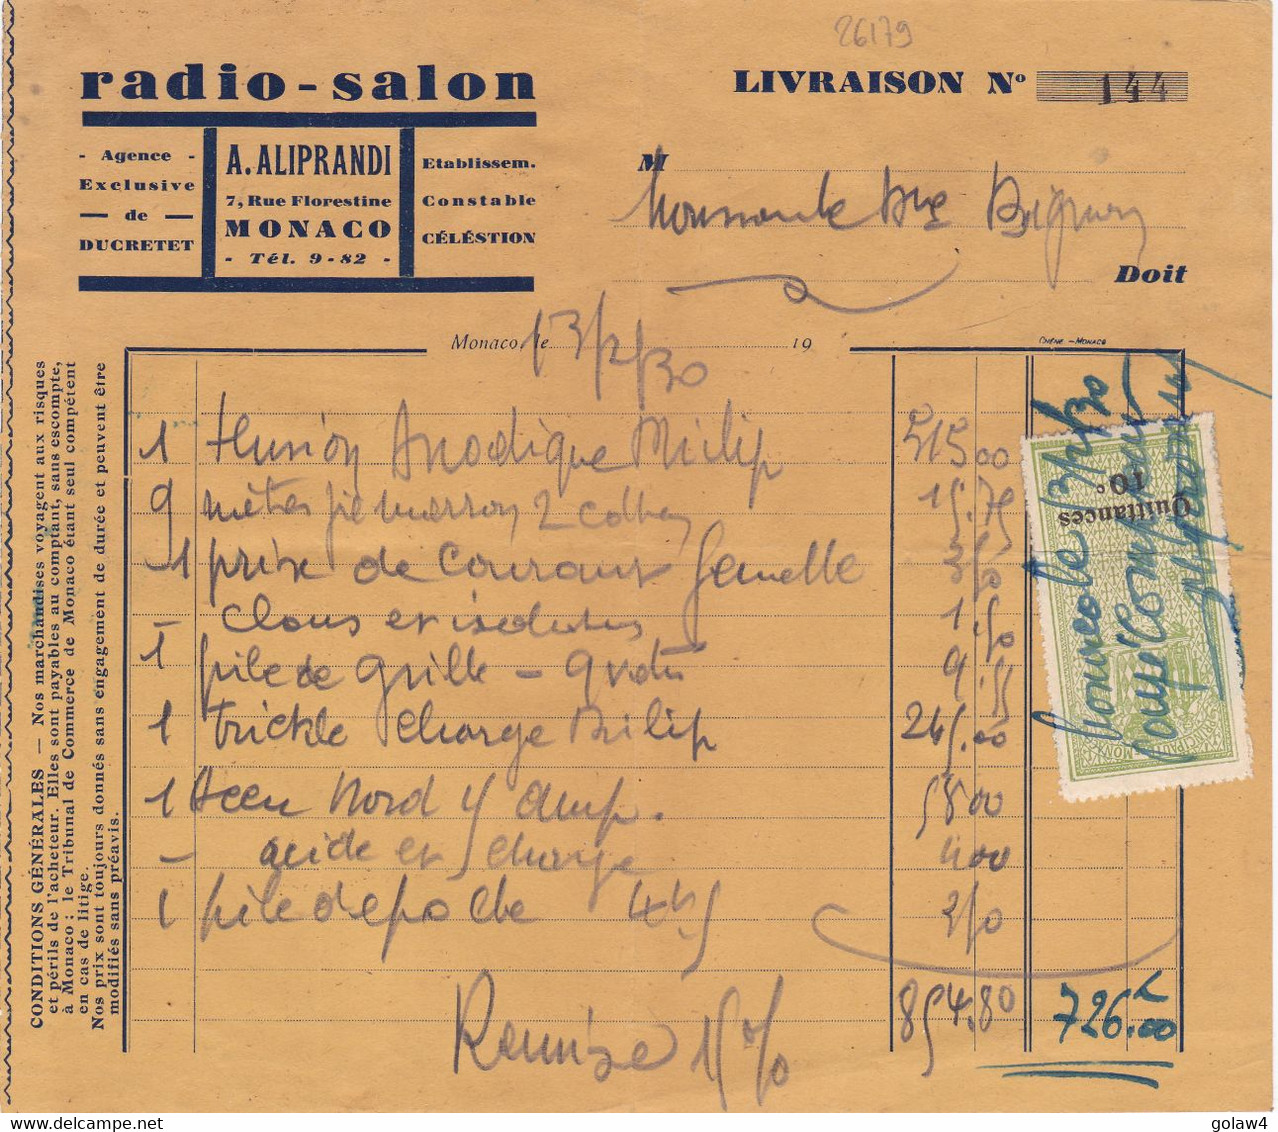 26179
radio-salon
- Agence -
Exclusive
— de —
DUCRETET
A. ALIPRANDI
7, Rue Florestine
MONACO
- Tél. 9-82 -
Etablissem.
Constable
CÉLÉSTION
LIVRAISON Nº 144
M
Doit
Monaco, le 13/2/30 19
CHÊNE - MONACO
1 Anodique Philip 515 00
9 mètres 2 15.75
1 prise de courant Gemelle 3 50
- Clous et isolants 1.50
1 pile de grille - 9 volts 9.55
1 trickle charge Philip 245.00
1 Accu Nord 4 amp. 58 00
- acide et charge 4 00
1 pile de poche 4 v 5 2 50
854.80
726.00
Remise 15 %
Quittances
10c
Monaco le 13/2/30
PRINCIPAUTÉ DE MONACO
CONDITIONS GÉNÉRALES — Nos marchandises voyagent aux risques
et périls de l'acheteur. Elles sont payables au comptant, sans escompte,
à Monaco ; le Tribunal de Commerce de Monaco étant seul compétent
en cas de litige.
Nos prix sont toujours donnés sans engagement de durée et peuvent être
modifiés sans préavis.
delcampe.net
golaw4